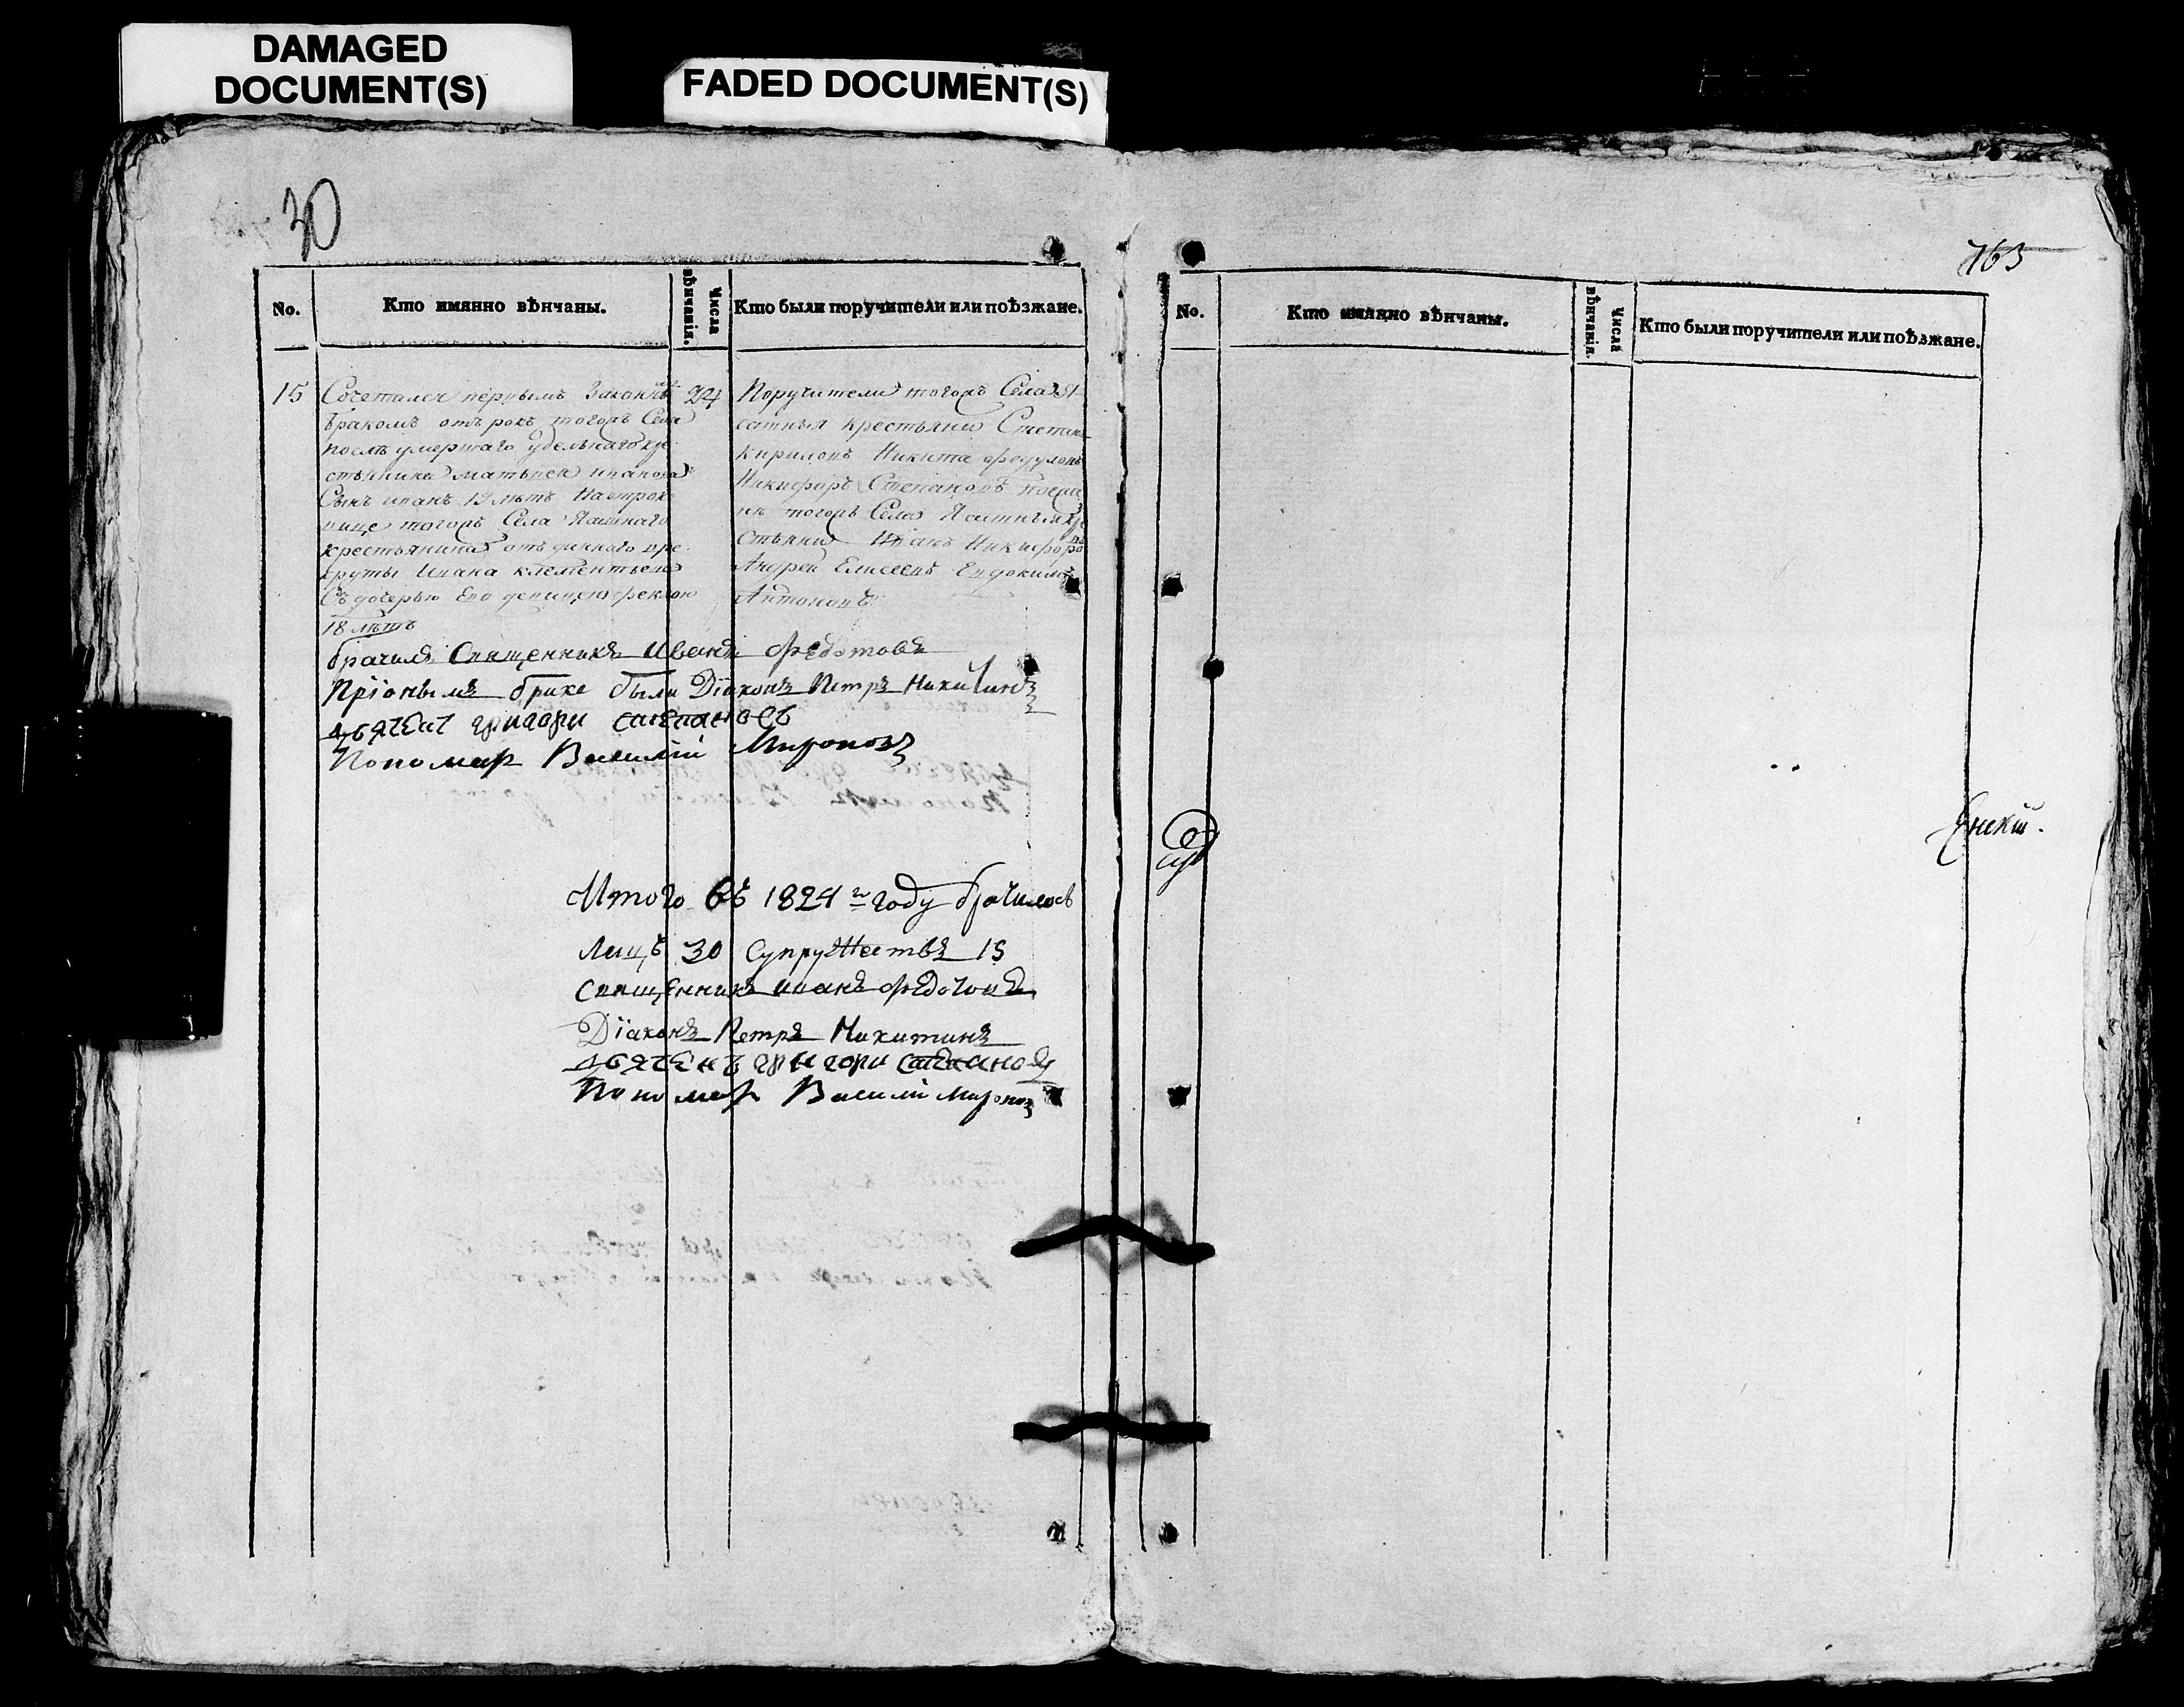 DAMAGED
DOCUMENT(S)
FADED DOCUMENT(S)
30
No.
Кто имянно вѣнчаны.
Числа вѣнчанія.
Кто были поручители или поѣзжане.
15
Сочетался первымъ Законнымъ
бракомъ отърокъ тогожъ Села
послѣ умершаго удельнаго кре
стьянина матвея иванова
Сынъ иванъ 19 лѣтъ На отроко
вице тогожъ Села Ясашнаго
крестьянина отъданнаго вре
круты Ивана клементьева
Съ дочерью Его девицею феклою
18 лѣтъ
24
Поручители тогожъ Села Я
сатныя крестьяни Степанъ
Кириловъ Никита федуловъ
Никифоръ Степановъ поезжа
не тогожъ Села Ясатныя кре
Стьяни Иванъ Никифоровъ
Андрей Елисеевъ Евдокимъ
Антоновъ
брачилъ Священникъ Иванъ Федотовъ
Пріонымъ браке были Діаконъ Петръ Никитинъ
дьячекъ григори степановъ
Пономар Василий Мироновъ
Итого въ 1824 г году брачилось
Лицъ 30 Супружествъ 15
Священникъ иванъ Федотовъ
Діаконъ Петръ Никитинъ
дьячекъ григори степановъ
Пономар Васили Мироновъ
763
No.
Кто имянно вѣнчаны.
Числа вѣнчанія.
Кто были поручители или поѣзжане.